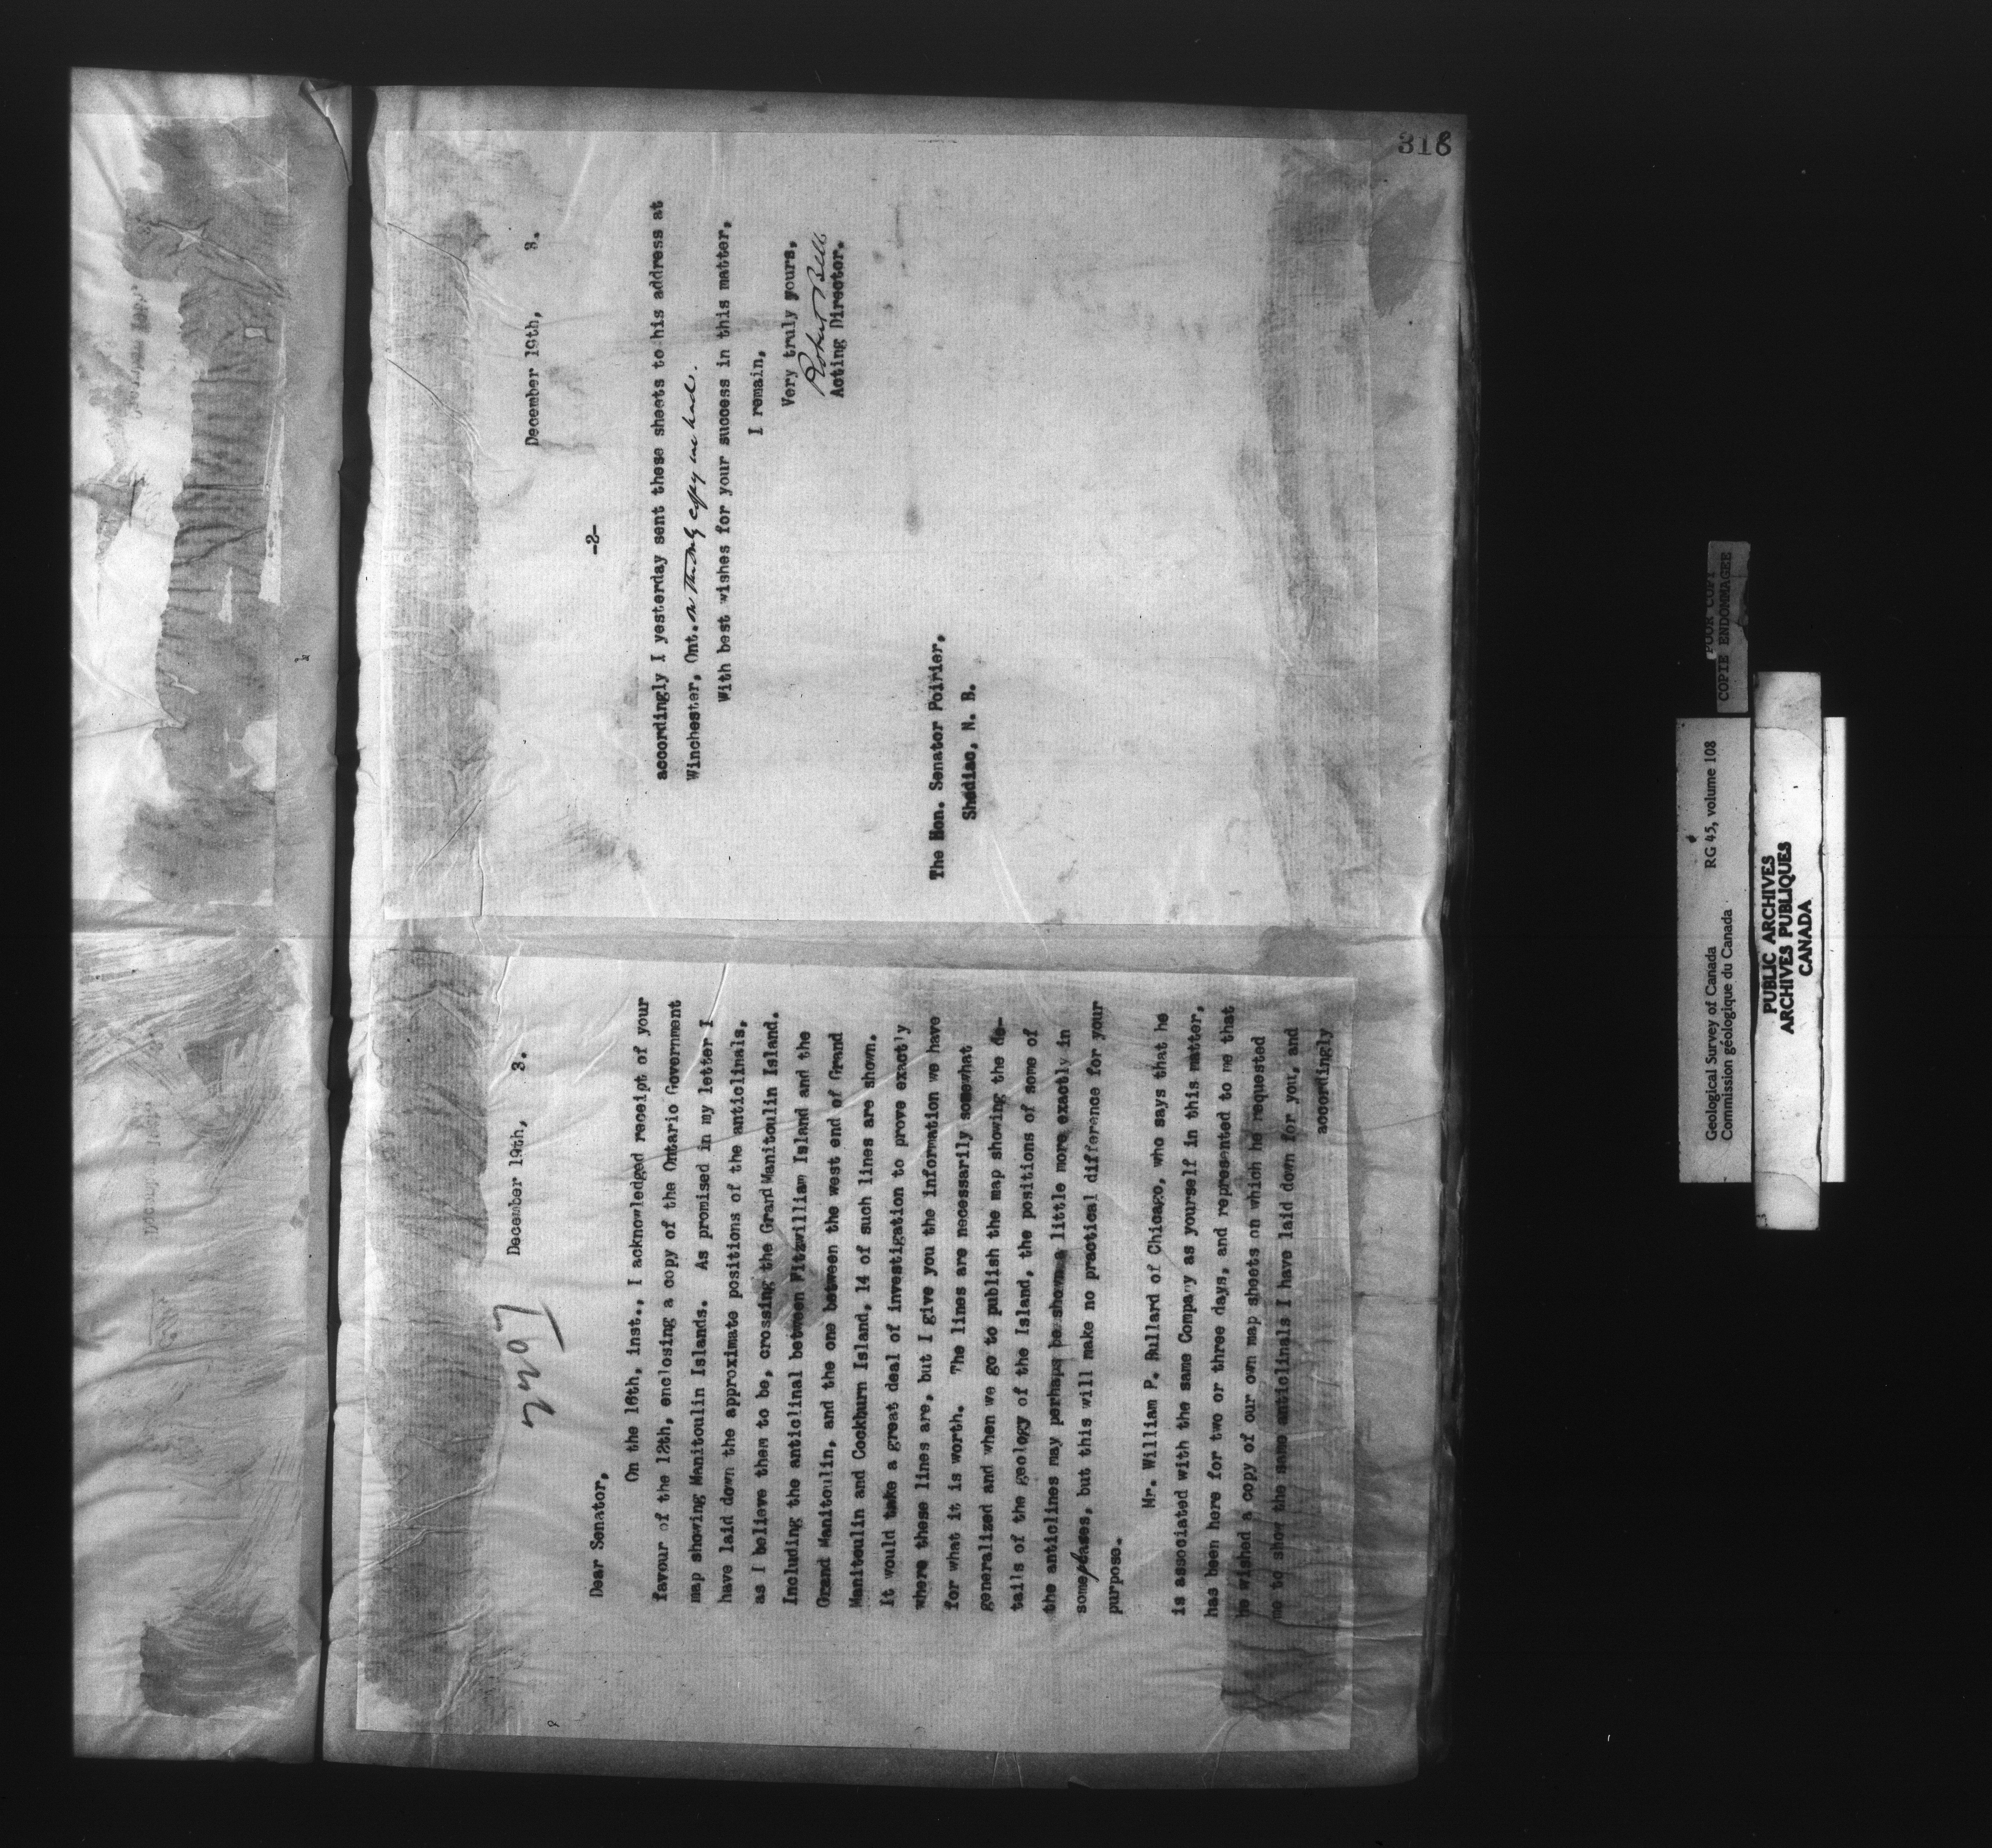 December 19th, 3.
Dear Senator,
On the 16th, inst., I acknowledged receipt of your
favour of the 12th, enclosing a copy of the Ontario Government
map showing Manitoulin Islands. As promised in my letter I
have laid down the approximate positions of the anticlinals,
as I believe them to be, crossing the Grand Manitoulin Island.
Including the anticlinal between Fitzwilliam Island and the
Grand Manitoulin, and the one between the west end of Grand
Manitoulin and Cockburn Island, 14 of such lines are shown.
It would take a great deal of investigation to prove exactly
where these lines are, but I give you the information we have
for what it is worth. The lines are necessarily somewhat
generalized and when we go to publish the map showing the de-
tails of the geology of the Island, the positions of some of
the anticlines may perhaps be shown a little more exactly in
some cases, but this will make no practical difference for your
purpose.
Mr. William P. Bullard of Chicago, who says that he
is associated with the same Company as yourself in this matter,
has been here for two or three days, and represented to me that
he wished a copy of our own map sheets on which he requested
me to show the same anticlinals I have laid down for you, and
accordingly
December 19th, 3.
-2-
accordingly I yesterday sent these sheets to his address at
Winchester, Ont. on the only copy we had.
With best wishes for your success in this matter,
I remain,
Very truly yours,
Robert Bell
Acting Director.
The Hon. Senator Poirier,
Shediac, N. B.
316
Geological Survey of Canada RG 45, volume 108
Commission géologique du Canada
POOR COPY
COPIE ENDOMMAGEE
PUBLIC ARCHIVES
ARCHIVES PUBLIQUES
CANADA